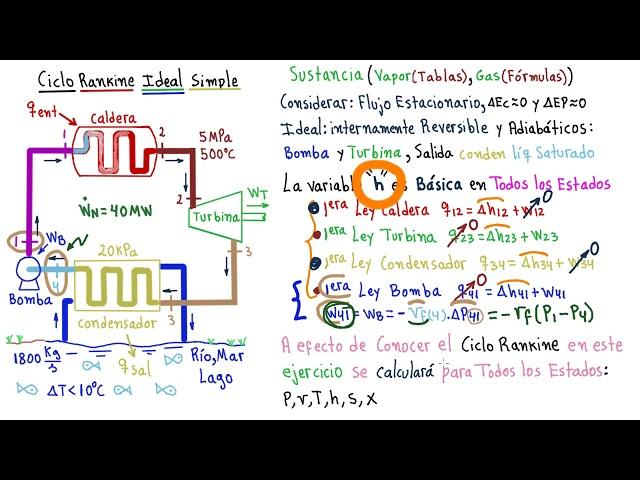 Ciclo Rankine Ideal Simple
qent
caldera
1
2
5MPa
500°C
2
WT
Turbina
ẆN = 40MW
3
1
WB
4
Bomba
20kPa
condensador
3
1800 Kg/s
qsal
Río, Mar
Lago
ΔT<10°C
Sustancia (Vapor(Tablas), Gas(Fórmulas))
Considerar: Flujo Estacionario, ΔEc≈0 y ΔEP≈0
Ideal: internamente Reversible y Adiabáticos:
Bomba y Turbina, Salida conden líq Saturado
La variable "h" es Básica en Todos los Estados
1era Ley Caldera q12 = Δh12 + w12 0
1era Ley Turbina q23 0 = Δh23 + w23
1era Ley Condensador q34 = Δh34 + w34 0
1era Ley Bomba q41 0 = Δh41 + w41
w41 = WB = -vf(4).ΔP41 = -vf(P1-P4)
A efecto de Conocer el Ciclo Rankine en este
ejercicio se calculará para Todos los Estados:
P,v,T,h,s,x